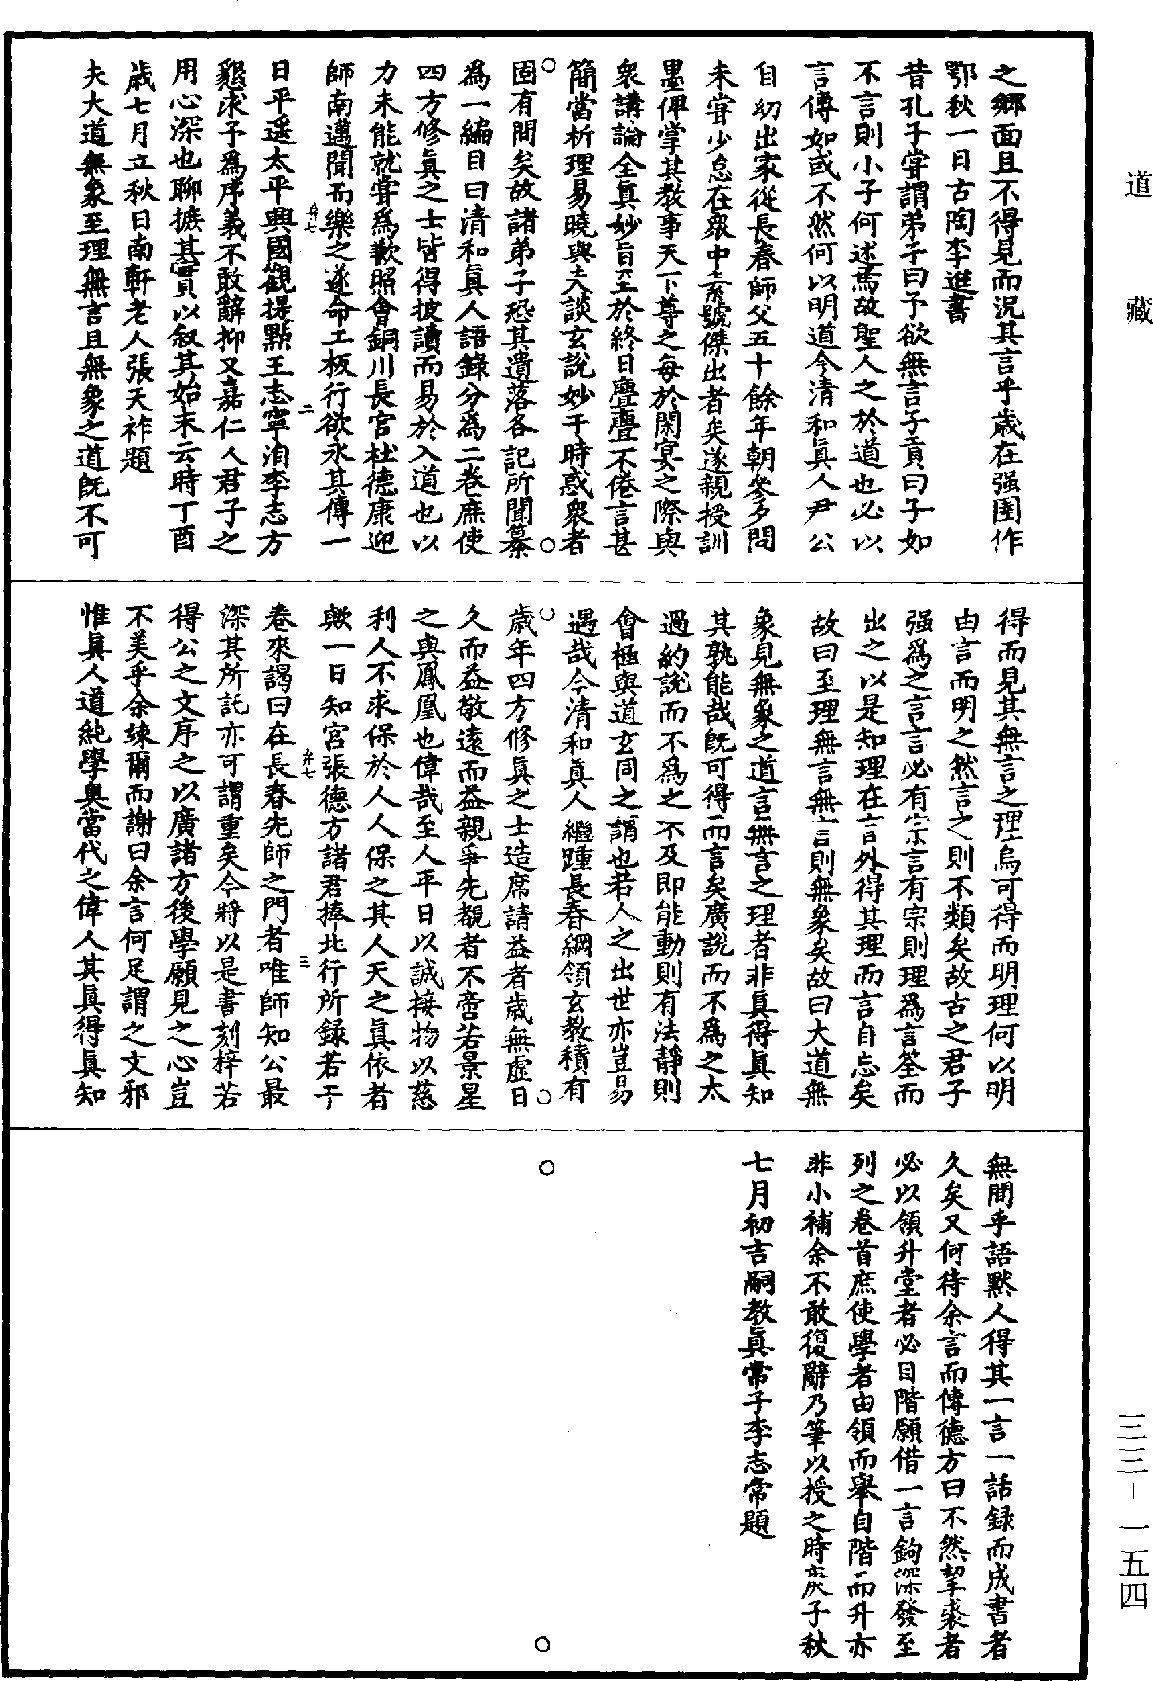 道藏
之鄉面且不得見而況其言乎歲在强圉作
鄂秋一日古陶李進書
昔孔子嘗謂弟子曰予欲無言子貢曰子如
不言則小子何述焉故聖人之於道也必以
言傳如或不然何以明道今清和真人尹公
自幼出家從長春師父五十餘年朝參夕問
未嘗少怠在衆中素號傑出者矣遂親授訓
墨俾掌其教事天下尊之每於閑宴之際與
衆講論全真妙旨至於終日亹亹不倦言甚
簡當析理易曉與夫談玄說妙于時惑衆者
固有間矣故諸弟子恐其遺落各記所聞纂
爲一編目曰清和真人語錄分爲二卷庶使
四方修真之士皆得披讀而易於入道也以
力未能就嘗爲歉照會銅川長官杜德康迎
師南邁聞而樂之遂命工板行欲永其傳一
弁七 二
日平遥太平興國觀提點王志寧洎李志方
懇求予爲序義不敢辭抑又嘉仁人君子之
用心深也聊摭其實以叙其始末云時丁酉
歲七月立秋日南軒老人張天祚題
夫大道無象至理無言且無象之道既不可
得而見其無言之理烏可得而明理何以明
由言而明之然言之則不類矣故古之君子
强爲之言言必有宗言有宗則理爲言筌而
出之以是知理在言外得其理而言自忘矣
故曰至理無言無言則無象矣故曰大道無
象見無象之道言無言之理者非真得真知
其孰能哉既可得而言矣廣說而不爲之太
過約說而不爲之不及即能動則有法靜則
會極與道玄同之謂也若人之出世亦豈易
遇哉今清和真人繼踵長春綱領玄教積有
歲年四方修真之士造席請益者歲無虛日
久而益敬遠而益親爭先覩者不啻若景星
之與鳳凰也偉哉至人平日以誠接物以慈
利人不求保於人人保之其人天之真依者
歟一日知宮張德方諸君捧北行所録若干
弁七 三
卷來謁曰在長春先師之門者唯師知公最
深其所託亦可謂重矣今將以是書刻梓若
得公之文序之以廣諸方後學願見之心豈
不美乎余竦爾而謝曰余言何足謂之文邪
惟真人道純學奥當代之偉人其真得真知
無間乎語默人得其一言一話録而成書者
久矣又何待余言而傳德方曰不然挈裘者
必以領升堂者必自階願借一言鉤深發至
列之卷首庶使學者由領而舉自階而升亦
非小補余不敢復辭乃筆以授之時庚子秋
七月初吉嗣教真常子李志常題
三三－一五四